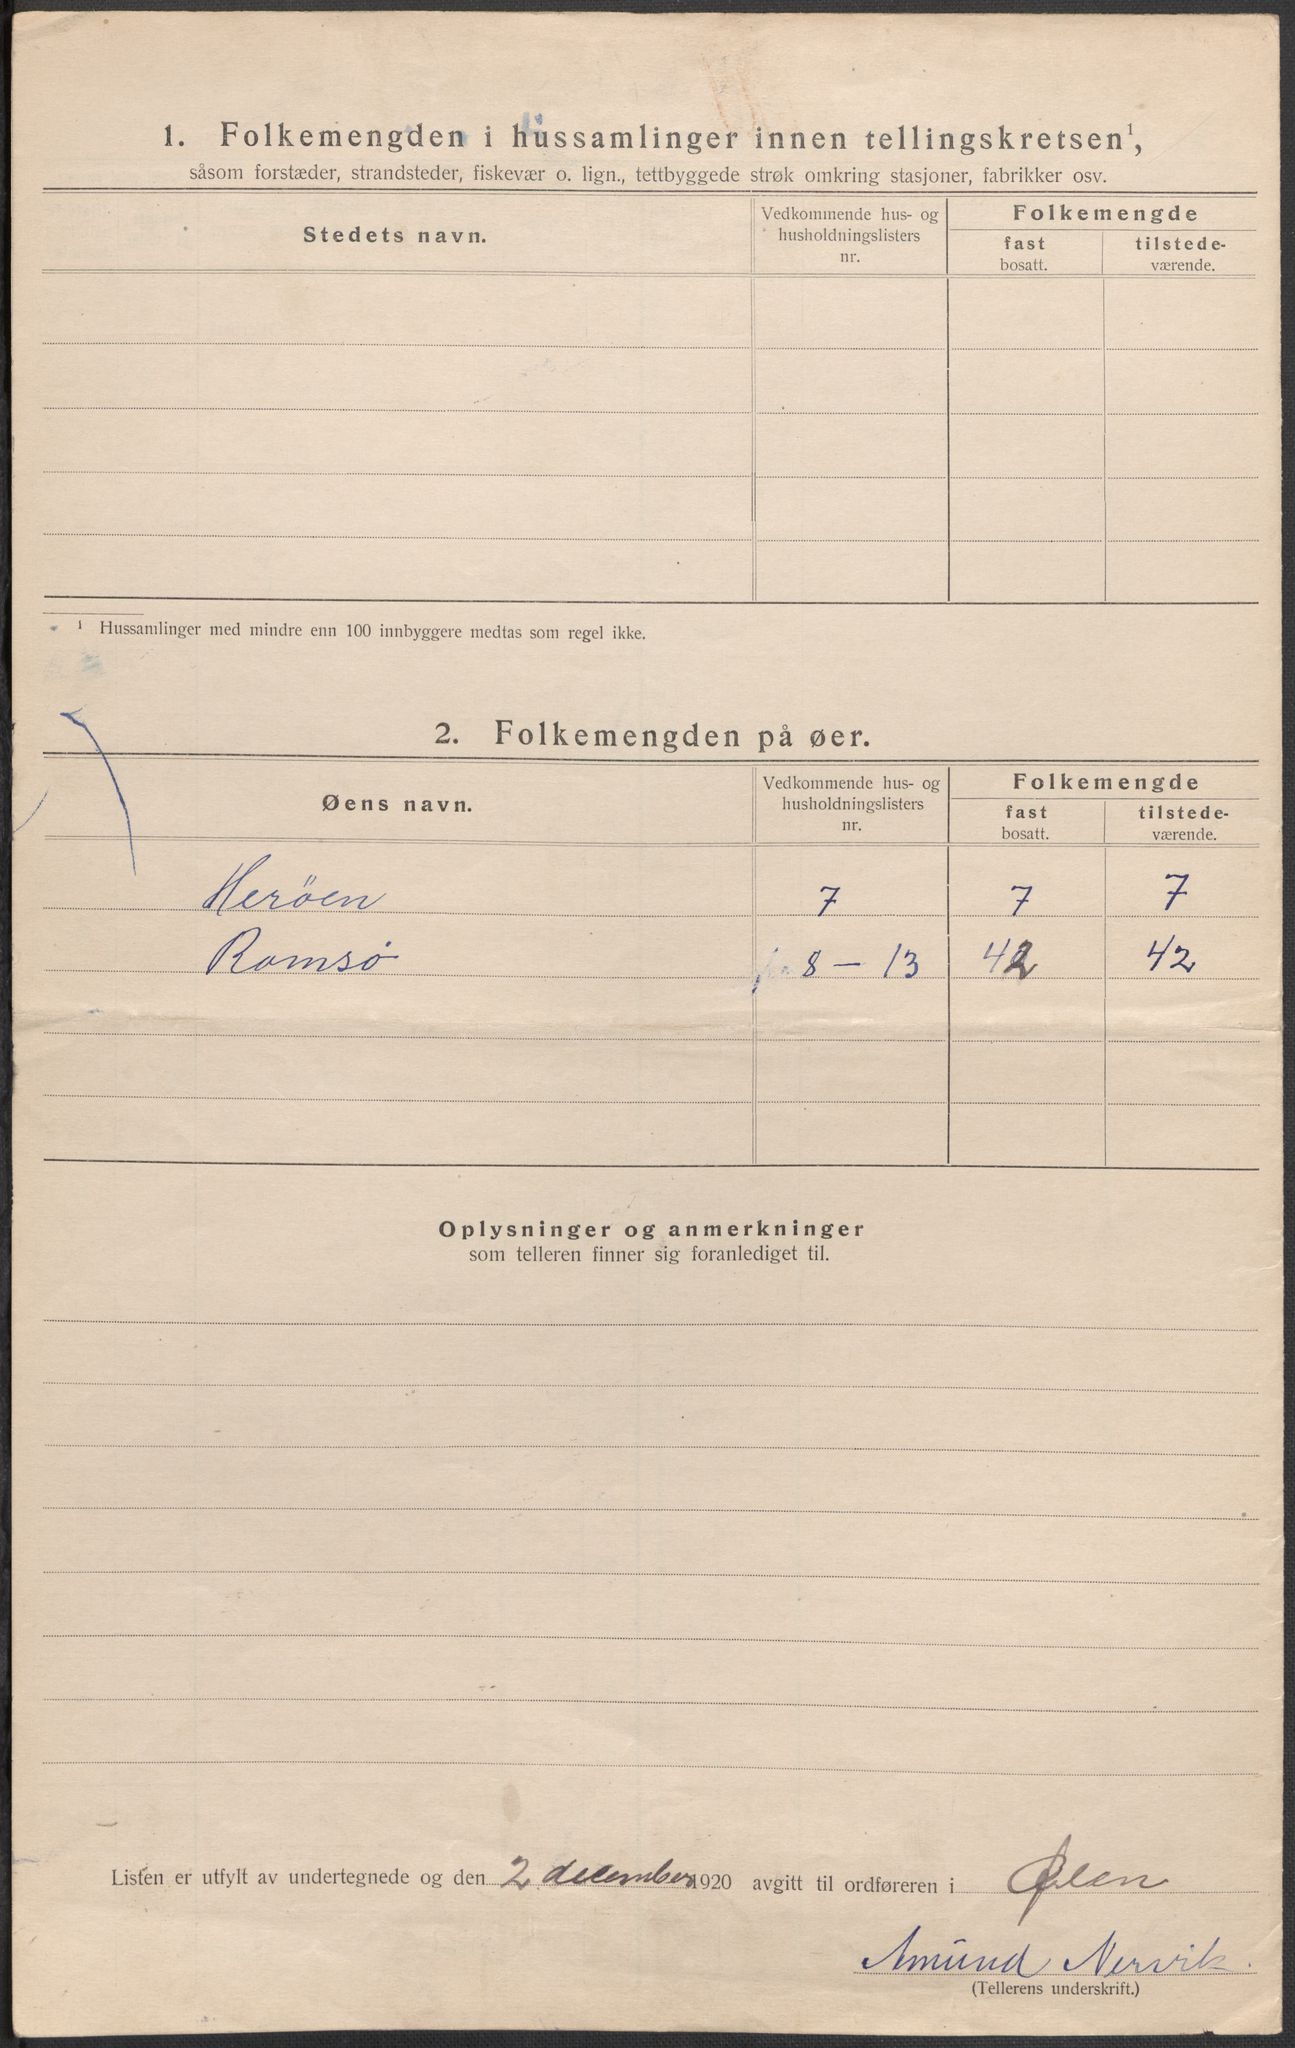 1. Folkemengden i hussamlinger innen tellingskretsen¹,
såsom forstæder, strandsteder, fiskevær o. lign., tettbyggede strøk omkring stasjoner, fabrikker osv.
Stedets navn.
Vedkommende hus- og
husholdningslisters
nr.
Folkemengde
fast
bosatt.
tilstede-
værende.
¹ Hussamlinger med mindre enn 100 innbyggere medtas som regel ikke.
2. Folkemengden på øer.
Øens navn.
Vedkommende hus- og
husholdningslisters
nr.
Folkemengde
fast
bosatt.
tilstede-
værende.
Heröen 7 7 7
Romsø 8 – 13 42 42
Oplysninger og anmerkninger
som telleren finner sig foranlediget til.
Listen er utfylt av undertegnede og den 2 december 1920 avgitt til ordføreren i Ølen
Amund Nervik.
(Tellerens underskrift.)